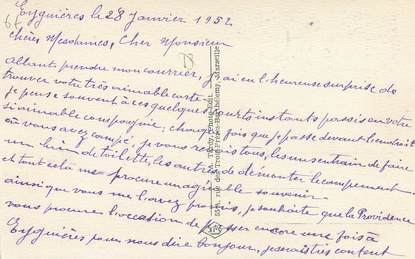 Eyguières le 28 Janvier 1952
Chères Mesdames, Cher Monsieur
Allant prendre mon courrier, j'ai eu l'heureuse surprise de
trouver votre très aimable carte
je pense souvent à ces quelques courts instants passés en votre
si aimable compagnie; chaque fois que je passe devant l'endroit
où vous avez campé, je vous revois tous, les uns en train de faire
un brin de toilette, les autres de démonter le campement
et tout cela me procure un agréable souvenir.
ainsi que vous me l'avez promis, je souhaite que la Providence
vous procure l'occasion de passer encore une fois à
Eyguières pour nous dire bonjour, je serais très content